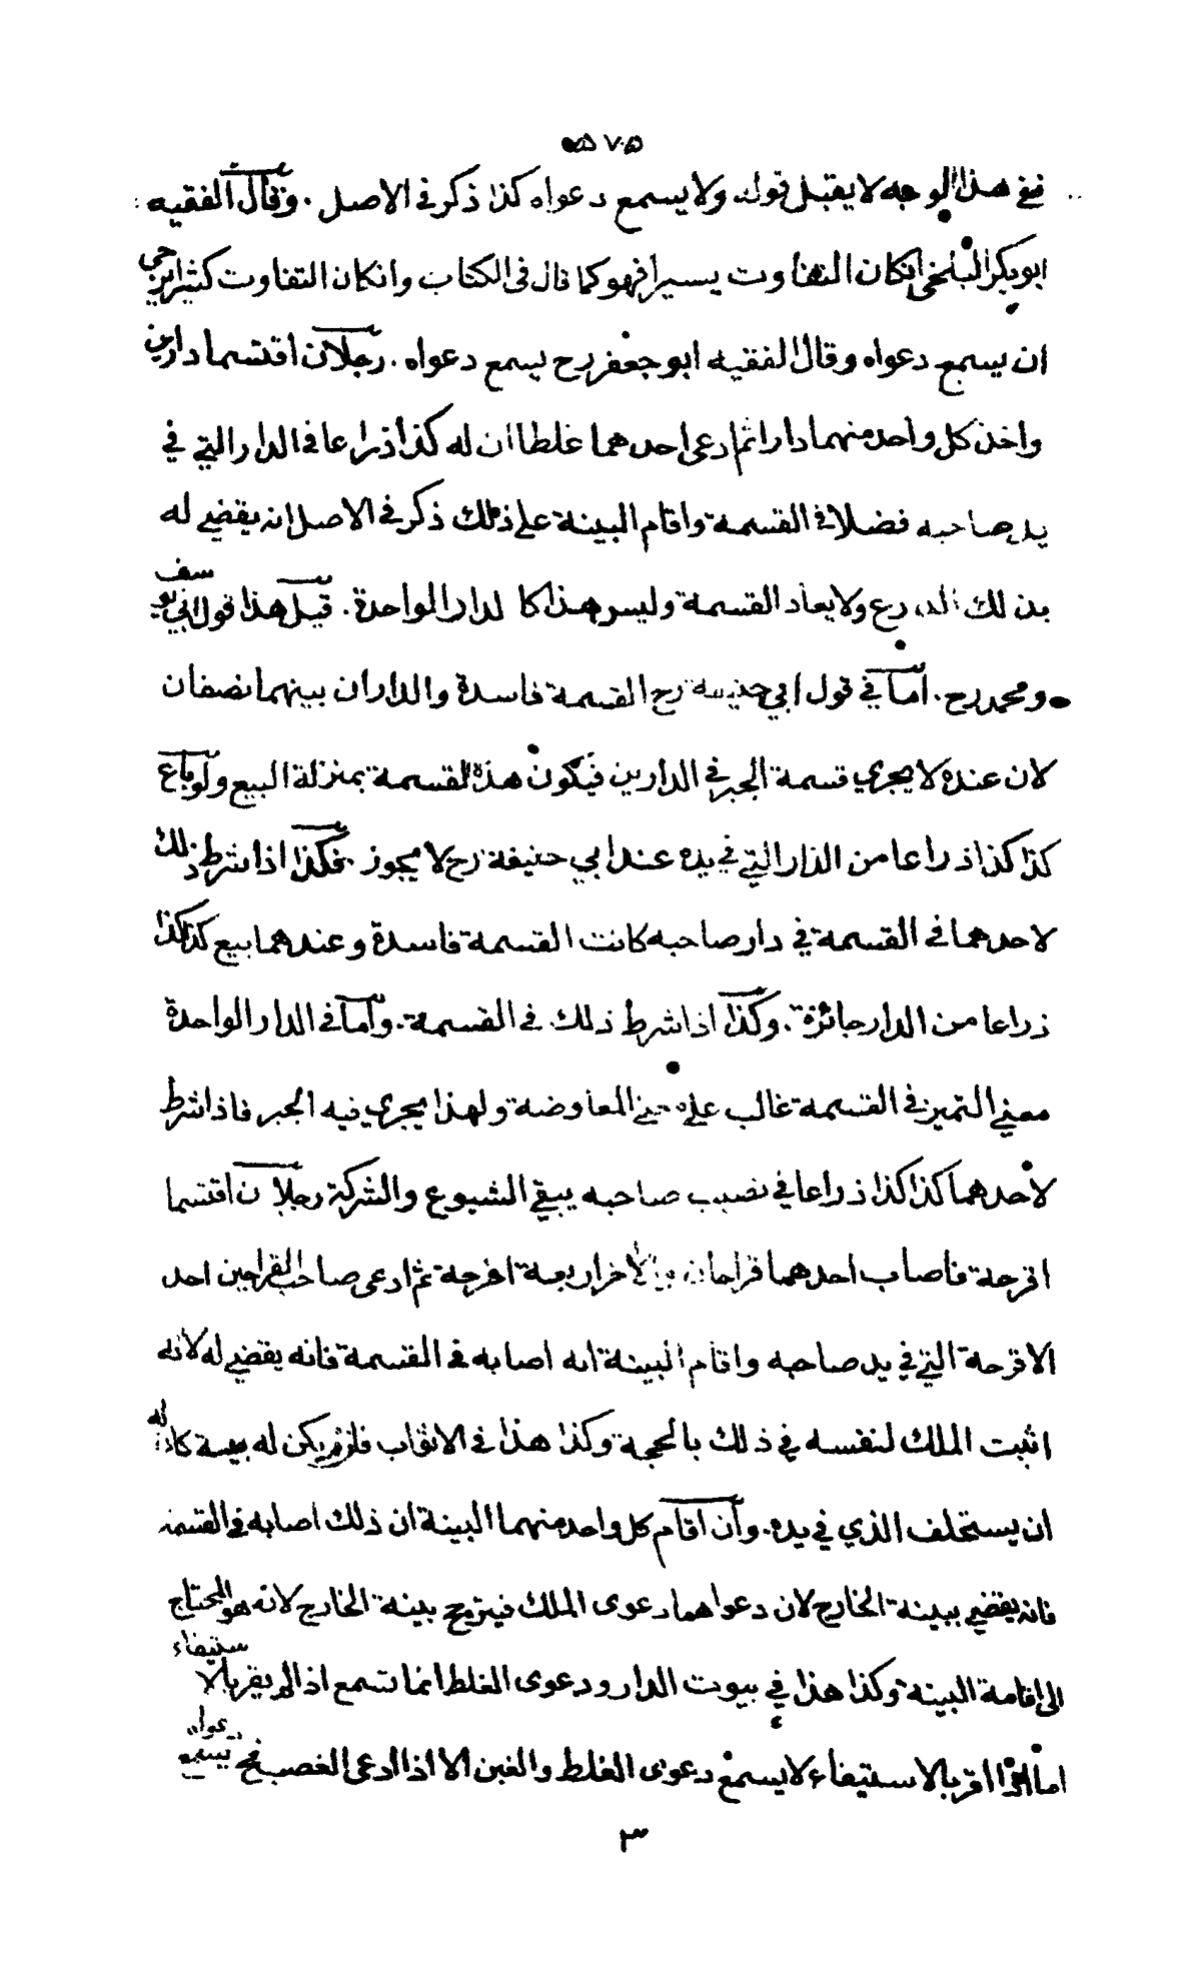 ٥٧٠٥
ففي هذا الوجه لا يقبل قوله ولا يسمع دعواه كذا ذكر في الاصل . وقال الفقيه
ابو بكر البلخي ان كان التفاوت يسيرا فهو كما قال في الكتاب وان كان التفاوت كثيرا يرجى
ان يسمع دعواه وقال الفقيه ابو جعفر رح يسمع دعواه . رجلان اقتسما دارين
واخذ كل واحد منهما دارا ثم ادعى احدهما غلطا ان له كذا ذراعا في الدار التي في
يد صاحبه فضلا في القسمة واقام البينة على ذلك ذكر في الاصل انه يقضي له
بذلك الذرع ولا يعاد القسمة وليس هذا كا لدار الواحدة . قيل هذا قول ابي يوسف
ومحمد رح . اما في قول ابي حنيفة رح القسمة فاسدة والداران بينهما نصفان
لان عنده لا يجري قسمة الجبر في الدارين فيكون هذه القسمة بمنزلة البيع ولو باع
كذا كذا ذراعا من الدار التي في يده عند ابي حنيفة رح لا يجوز . فكذا اذا شرط ذلك
لاحدهما في القسمة في دار صاحبه كانت القسمة فاسدة وعندهما بيع كذا كذا
ذراعا من الدار جائزة . وكذا اذا شرط ذلك في القسمة . واما في الدار الواحدة
معنى التميز في القسمة غالب على معنى المعاوضة ولهذا يجري فيه الجبر فاذا شرط
لاحدهما كذا كذا ذراعا في نصيب صاحبه يبقي الشيوع والشركة رجلان اقتسما
اقرحة فاصاب احدهما قراحان والاخر اربعة اقرحة ثم ادعى صاحب القراحين احد
الاقرحة التي في يد صاحبه واقام البينة انه اصابه في القسمة فانه يقضي له لانه
اثبت الملك لنفسه في ذلك بالحجة وكذا هذا في الاثواب فلو لم يكن له بينة كان له
ان يستحلف الذي في يده . وان اقام كل واحد منهما البينة ان ذلك اصابه في القسمة
فانه يقضي ببينة الخارج لان دعواهما دعوى الملك فيترجح بينة الخارج لانه هو المحتاج
الى اقامة البينة وكذا هذا في بيوت الدار ودعوى الغلط انما تسمع اذا لم يقر بالاستيفاء
اما اذا اقر بالاستيفاء لا يسمع دعوى الغلط والغبن الا اذا ادعى الغصب فح يسمع دعواه
٣